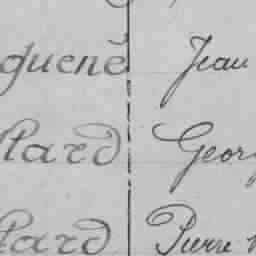 guené Jean
llard Georg
llard Pierre